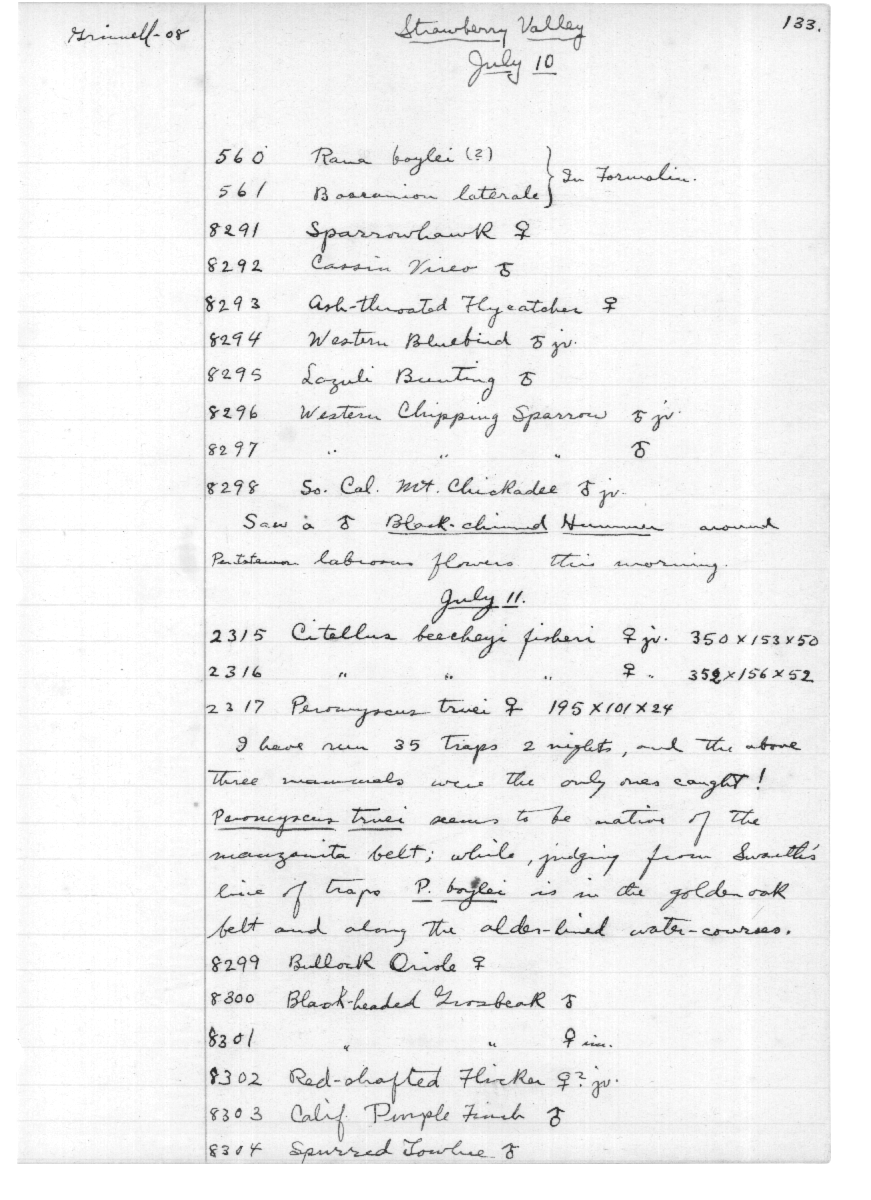 Grinnell-08
Strawberry Valley
133.
July 10
560 Rana boylei (?)
561 Bascanion laterale } In Formalin.
8291 Sparrowhawk ♀
8292 Cassin Vireo ♂
8293 Ash-throated Flycatcher ♀
8294 Western Bluebird ♂ jv.
8295 Lazuli Bunting ♂
8296 Western Chipping Sparrow ♂ jv.
8297 " " " ♂
8298 So. Cal. Mt. Chickadee ♂ jv.
Saw a ♂ Black-chinned Hummer around
Pentstemon labrosus flowers this morning.
July 11.
2315 Citellus beecheyi fisheri ♀ jv. 350 x 153 x 50
2316 " " " ♀ " 352 x 156 x 52
2317 Peromyscus truei ♀ 195 x 101 x 24
I have run 35 traps 2 nights, and the above
three mammals were the only ones caught!
Peromyscus truei seems to be native of the
manzanita belt; while, judging from Swarth's
line of traps P. boylei is in the golden oak
belt and along the alder-lined water-courses.
8299 Bullock Oriole ♀
8300 Black-headed Grosbeak ♂
8301 " " ♀ im.
8302 Red-shafted Flicker ♀? jv.
8303 Calif. Purple Finch ♂
8304 Spurred Towhee ♂